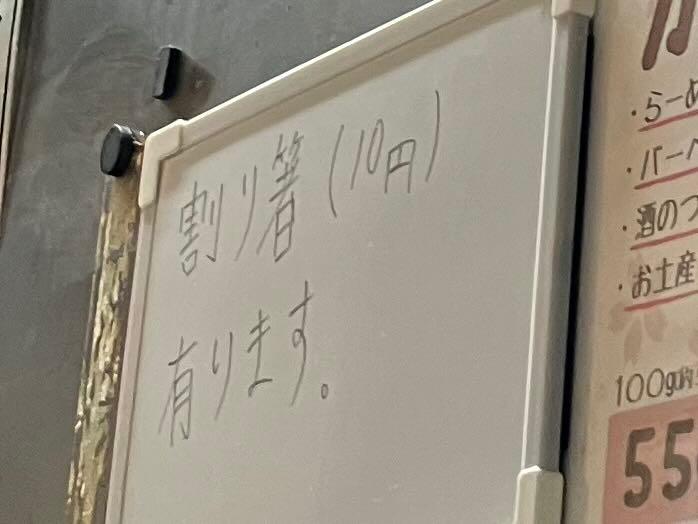 割り箸(10円)
有ります。
・らーめ
・バーベ
・酒のつ
・お土産
100g
55